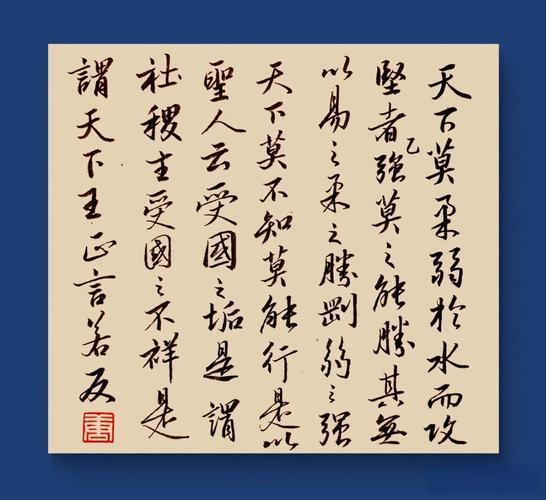 天下莫柔弱於水而攻
堅者強莫之能勝其無
以易之柔之勝剛弱之強
天下莫不知莫能行是以
聖人云受國之垢是謂
社稷主受國之不祥是
謂天下王正言若反